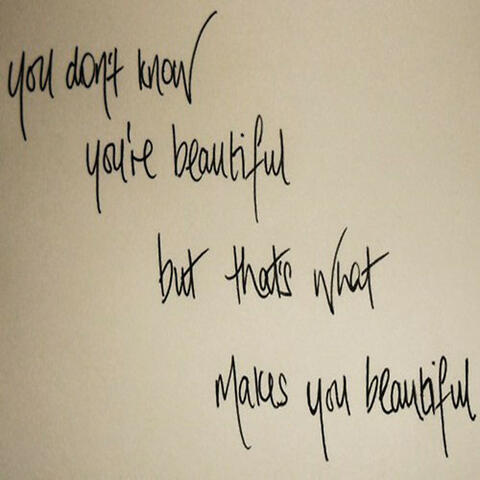 you don't know
you're beautiful
but that's what
makes you beautiful